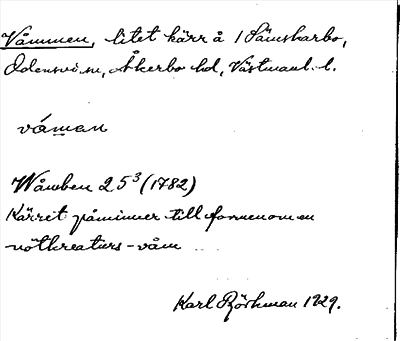 Våmmen, litet kärr å 1 Sämsharbo,
Odensvi sn, Åkerbo hd, Västmanl. l.
våman
Wåmben 25³ (1782)
Kärret påminner till formen om en
nötkreaturs-våm
Karl Björkman 1929.